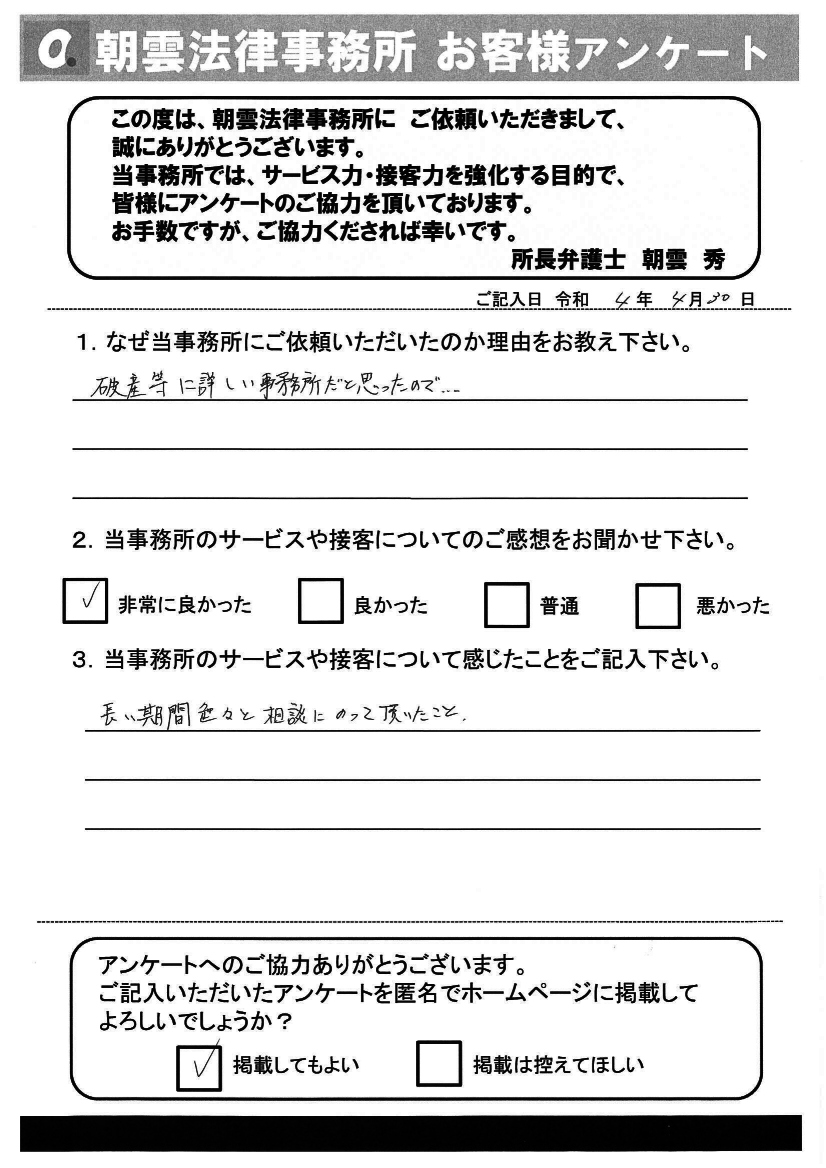 a. 朝雲法律事務所 お客様アンケート
この度は、朝雲法律事務所に ご依頼いただきまして、
誠にありがとうございます。
当事務所では、サービス力・接客力を強化する目的で、
皆様にアンケートのご協力を頂いております。
お手数ですが、ご協力くだされば幸いです。
所長弁護士 朝雲 秀
ご記入日 令和 4年 4月30日
1. なぜ当事務所にご依頼いただいたのか理由をお教え下さい。
破産等に詳しい事務所だと思ったので…
2. 当事務所のサービスや接客についてのご感想をお聞かせ下さい。
✓ 非常に良かった 良かった 普通 悪かった
3. 当事務所のサービスや接客について感じたことをご記入下さい。
長い期間色々と相談にのって頂いたこと.
アンケートへのご協力ありがとうございます。
ご記入いただいたアンケートを匿名でホームページに掲載して
よろしいでしょうか?
✓ 掲載してもよい 掲載は控えてほしい